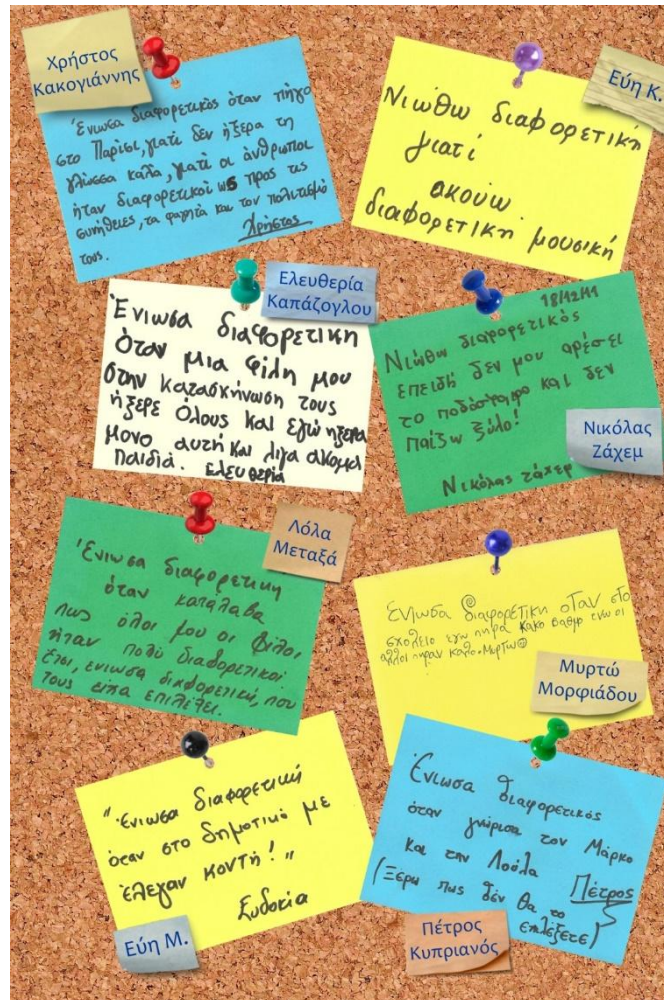 Χρήστος
Κακογιάννης
Ένιωσα διαφορετικός όταν πήγα
στο Παρίσι, γιατί δεν ήξερα τη
γλώσσα καλά, γιατί οι άνθρωποι
ήταν διαφορετικοί ως προς τις
συνήθειες, τα φαγητά και τον πολιτισμό
τους.
Χρήστος
Εύη Κ.
Νιώθω διαφορετική
γιατί
ακούω
διαφορετική μουσική
Ελευθερία
Καπάζογλου
Ένιωσα διαφορετικη
Όταν μια φίλη μου
στην κατασκήνωση τους
ήξερε Όλους και εγώ ήξερα
μονο αυτή και λιγα ακομα
παιδιά. Ελευθερία
18/12/11
Νιώθω διαφορετικός
επειδή δεν μου αρέσει
το ποδόσφαιρο και δεν
παίζω ξύλο!
Νικόλας Ζάχεμ
Νικόλας
Ζάχεμ
Λόλα
Μεταξά
Ένιωσα διαφορετικη
όταν κατάλαβα
πως όλοι μου οι φίλοι
ήταν πολύ διαφορετικοί
έτσι, ενιωσα διαφορετική, που
τους είχα επιλέξει.
Ενιωσα διαφορέτικη οταν στο
σχολειο εγω πηρα κακο βαθμο ενω οι
αλλοι πηραν καλο. Μυρτω
Μυρτώ
Μορφιάδου
"Ένιωσα διαφορετική
όταν στο δημοτικό με
έλεγαν κοντή!"
Ευδοκία
Εύη Μ.
Ένιωσα διαφορετικός
όταν γνώρισα τον Μάρκο
και την Λούλα Πέτρος
(Ξέρω πως δεν θα το
επιλέξετε)
Πέτρος
Κυπριανός